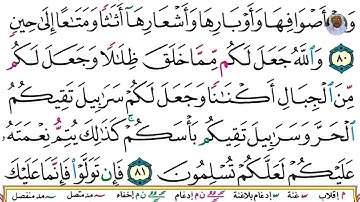 أَصْوَافِهَا وَأَوْبَارِهَا وَأَشْعَارِهَآ أَثَٰثًا وَمَتَٰعًا إِلَىٰ حِينٍ
٨٠ وَٱللَّهُ جَعَلَ لَكُم مِّمَّا خَلَقَ ظِلَٰلًا وَجَعَلَ لَكُم
مِّنَ ٱلْجِبَالِ أَكْنَٰنًا وَجَعَلَ لَكُمْ سَرَٰبِيلَ تَقِيكُمُ
ٱلْحَرَّ وَسَرَٰبِيلَ تَقِيكُم بَأْسَكُمْ ۚ كَذَٰلِكَ يُتِمُّ نِعْمَتَهُۥ
عَلَيْكُمْ لَعَلَّكُمْ تُسْلِمُونَ ٨١ فَإِن تَوَلَّوْا۟ فَإِنَّمَا عَلَيْكَ
م إقلاب غنة إدغام بلاغنة ن م إدغام ن م إخفاء مد متصل مد منفصل